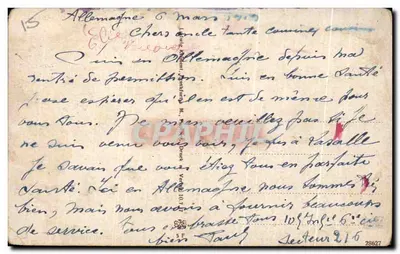 15
Allemagne 6 mars 1919
Chers oncle tante cousines
Suis en Allemagne depuis ma
rentrée de permission. Suis en bonne santé
j'ose espérer qu'il en est de même pour
vous tous. Ne m'en veuillez pas si je
ne suis venu vous voir, à Lasalle
je savais que vous étiez tous en parfaite
santé. Ici en Allemagne nous sommes
bien, mais nous avons à fournir beaucoup
de service. Tous 6e cie
bien Paul Secteur 216
CPARAMA
38627